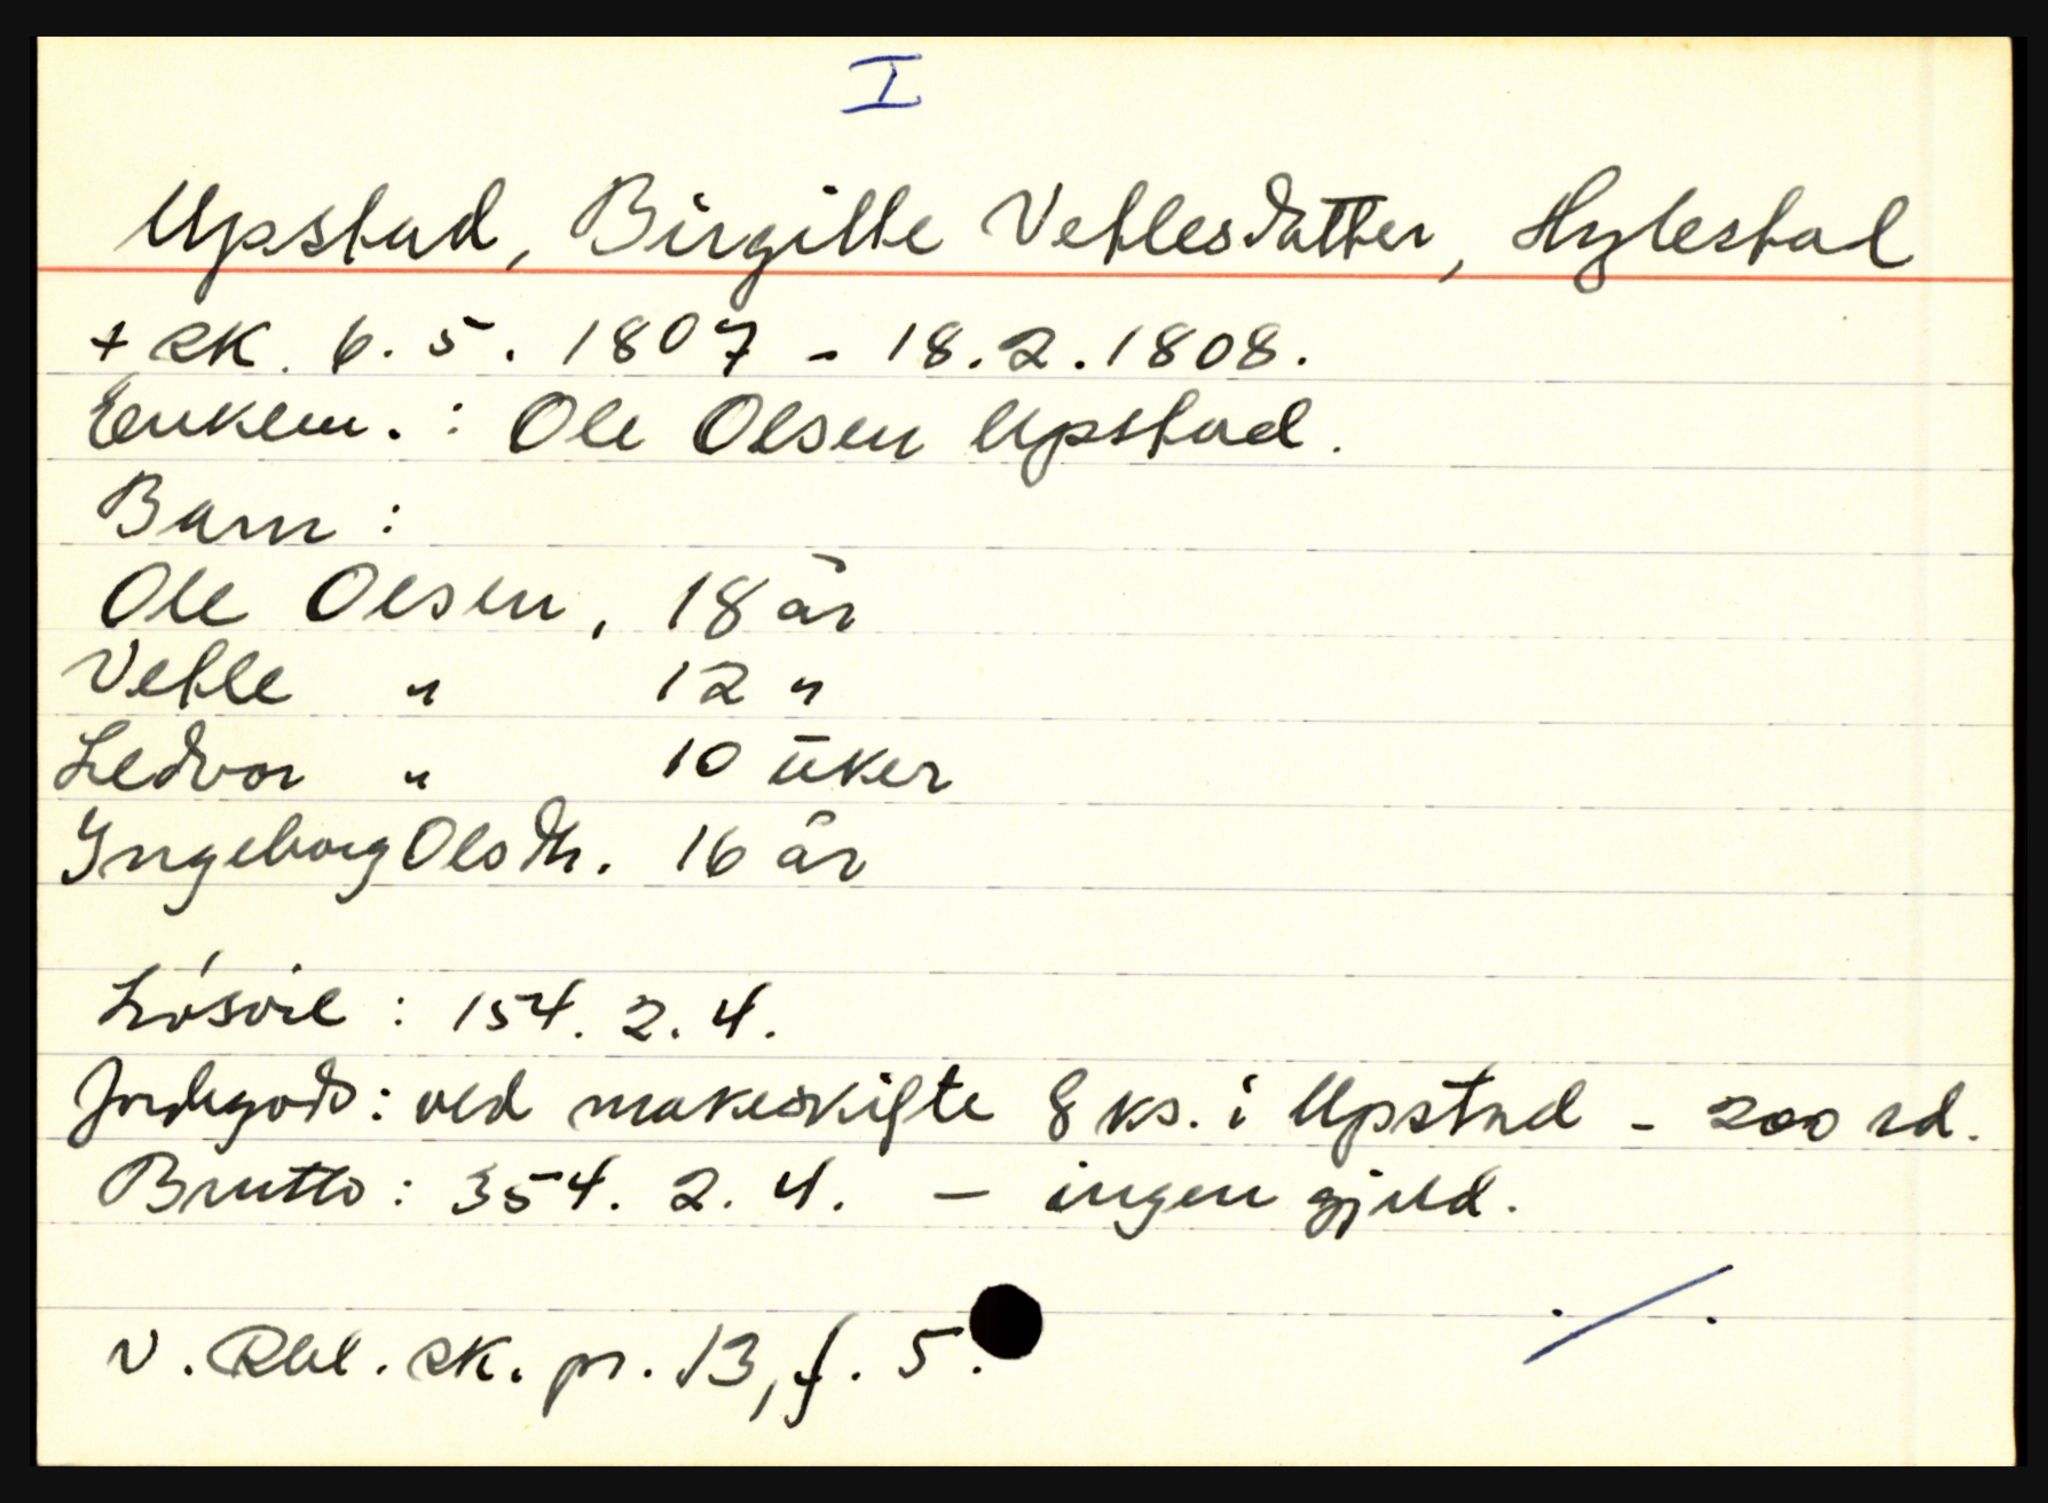 I
Upstad, Birgitte Vetlesdatter, Hylestad
+ sk. 6. 5. 1807 - 18. 2. 1808.
Enkem. : Ole Olsen Upstad.
Barn :
Ole Olsen, 18 år
Vetle " 12 "
Ledvor " 10 uker
Yngeborg Olsdtr. 16 år
Lösöre : 154. 2. 4.
Jordegods : ved makeskifte 8 ks. i Upstad - 200 rd.
Brutto : 354. 2. 4. - ingen gjeld.
V. Rbl. sk. pr. 13, f. 5.
./.